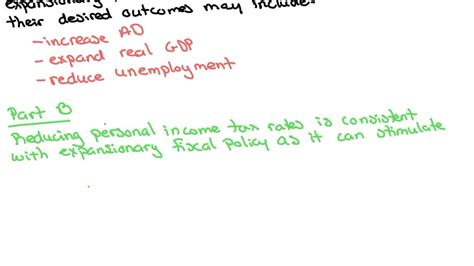 expansionary
their desired outcomes may include:
- increase AD
- expand real GDP
- reduce unemployment
Part B
Reducing personal income tax rates is consistent
with expansionary fiscal policy as it can stimulate